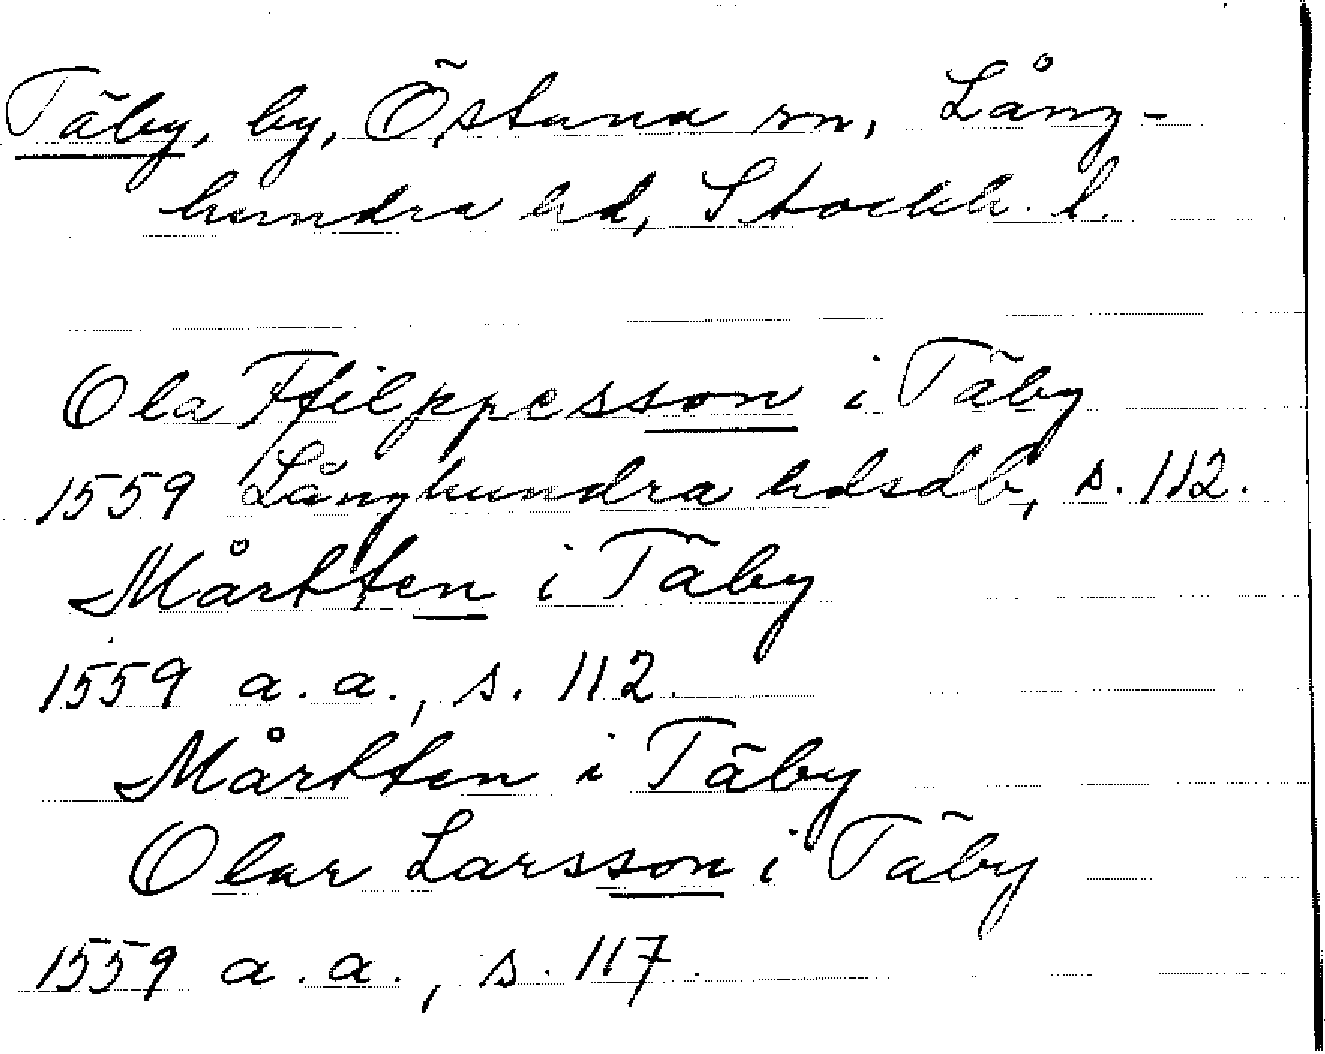 Täby, by, Östuna sn, Lång-
hundra hd, Stockh. l.
Ola Ffilppesson i Täby
1559 Långhundra hdsdb, s. 112.
Mårtten i Täby
1559 a.a., s. 112.
Mårtten i Täby
Olar Larsson i Täby
1559 a.a., s. 117.